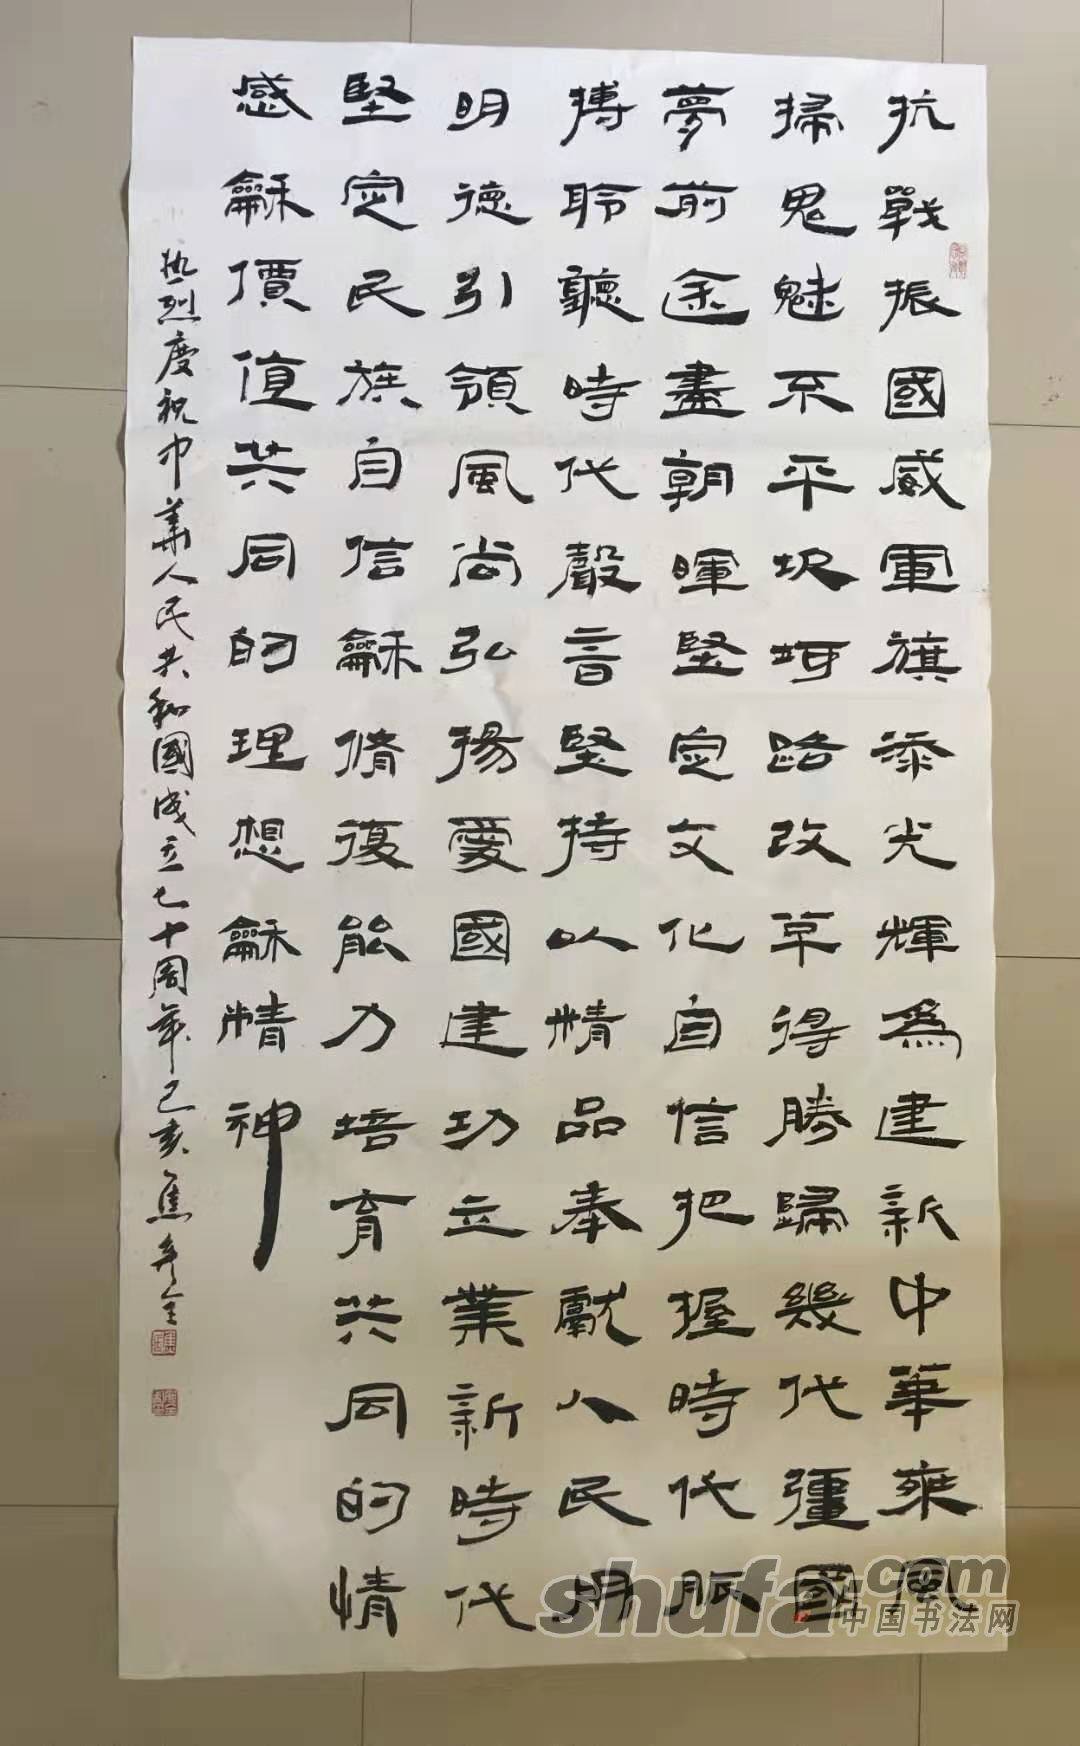 抗戰振國威軍旗添光輝為建新中華乘風
掃鬼魅不平坎坷路改革得勝歸幾代彊國
夢前途盡朝暉堅定文化自信把握時代脈
搏聆聽時代聲音堅持以精品奉獻人民用
明德引領風尚弘揚愛國建功立業新時代
堅定民族自信龢脩復能力培育共同的情
感龢價值共同的理想龢精神
热烈慶祝中華人民共和國成立七十周年己亥焦全
shufa.com
中国书法网